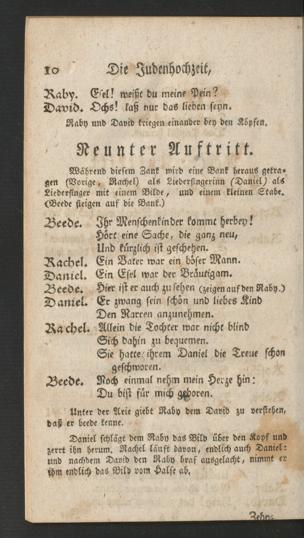 10 Die Judenhochzeit,
Raby. Esel! weißt du meine Pein?
David. Ochs! laß nur das lieben seyn.
Raby und David kriegen einander bey den Köpfen.
Neunter Auftritt.
Während diesem Zank wird eine Bank heraus getra-
gen (Vorige, Rachel) als Liedersingerinn (Daniel) als
Liedersinger mit einem Bilde, und einem kleinen Stabe.
(Beede steigen auf die Bank.)
Beede. Ihr Menschenkinder kommt herbey!
Hört eine Sache, die ganz neu,
Und kürzlich ist geschehen.
Rachel. Ein Vater war ein böser Mann.
Daniel. Ein Esel war der Bräutigam.
Beede. Hier ist er auch zu sehen (zeigen auf den Raby.)
Daniel. Er zwang sein schön und liebes Kind
Den Narren anzunehmen.
Rachel. Allein die Tochter war nicht blind
Sich dahin zu bequemen.
Sie hatte ihrem Daniel die Treue schon
geschworen.
Beede. Noch einmal nehm mein Herze hin:
Du bist für mich geboren.
Unter der Arie giebt Raby dem David zu verstehen,
daß er beede kenne.
Daniel schlägt dem Raby das Bild über den Kopf und
zerrt ihn herum. Rachel läuft davon, endlich auch Daniel:
und nachdem David den Raby braf ausgelacht, nimmt er
ihm endlich das Bild vom Halse ab.
Zehn-